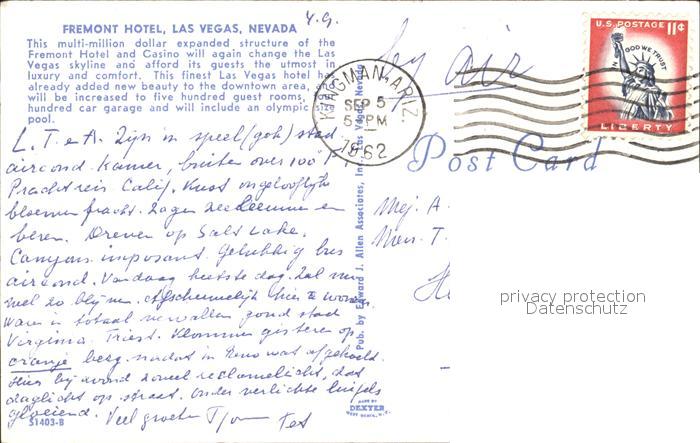 4.9.
FREMONT HOTEL, LAS VEGAS, NEVADA
This multi-million dollar expanded structure of the
Fremont Hotel and Casino will again change the Las
Vegas skyline and afford its guests the utmost in
luxury and comfort. This finest Las Vegas hotel has
already added new beauty to the downtown area, and
will be increased to five hundred guest rooms,
hundred car garage and will include an olympic size
pool.
by air
KINGMAN, ARIZ.
SEP 5
5 PM
1962
U.S. POSTAGE 11¢
IN GOD WE TRUST
LIBERTY
Post Card
L. T. en A. Zijn in speel (gok) stad
aircond. kamer, buiten over 100°F.
Prachtreis Calif. Kust ongelooflijk
bloemenpracht. Zagen zeeleeuwen en
beren. Dreven op Salt Lake.
Canyons imposant. Gelukkig bus
aircond. Vandaag heetste dag. Zal nu
wel zo blijven. Afschuwelijk hier te wonen.
Waren in totaal vervallen goud stad
Virginia. Triest. Klommen gisteren op
oranje berg. nadat in Reno was afgekoeld.
Hier bij avond zoveel reclamelicht, dat
daglicht op straat. Onder verlichte luifels
gloeiend. Veel groeten Tjom Tet
Mej. A.
Mevr. T.
Pub. by Edward J. Allen Associates, Inc., Las Vegas, Nevada
S1403-B
MADE BY
DEXTER
WEST NYACK, N.Y.
privacy protection
Datenschutz